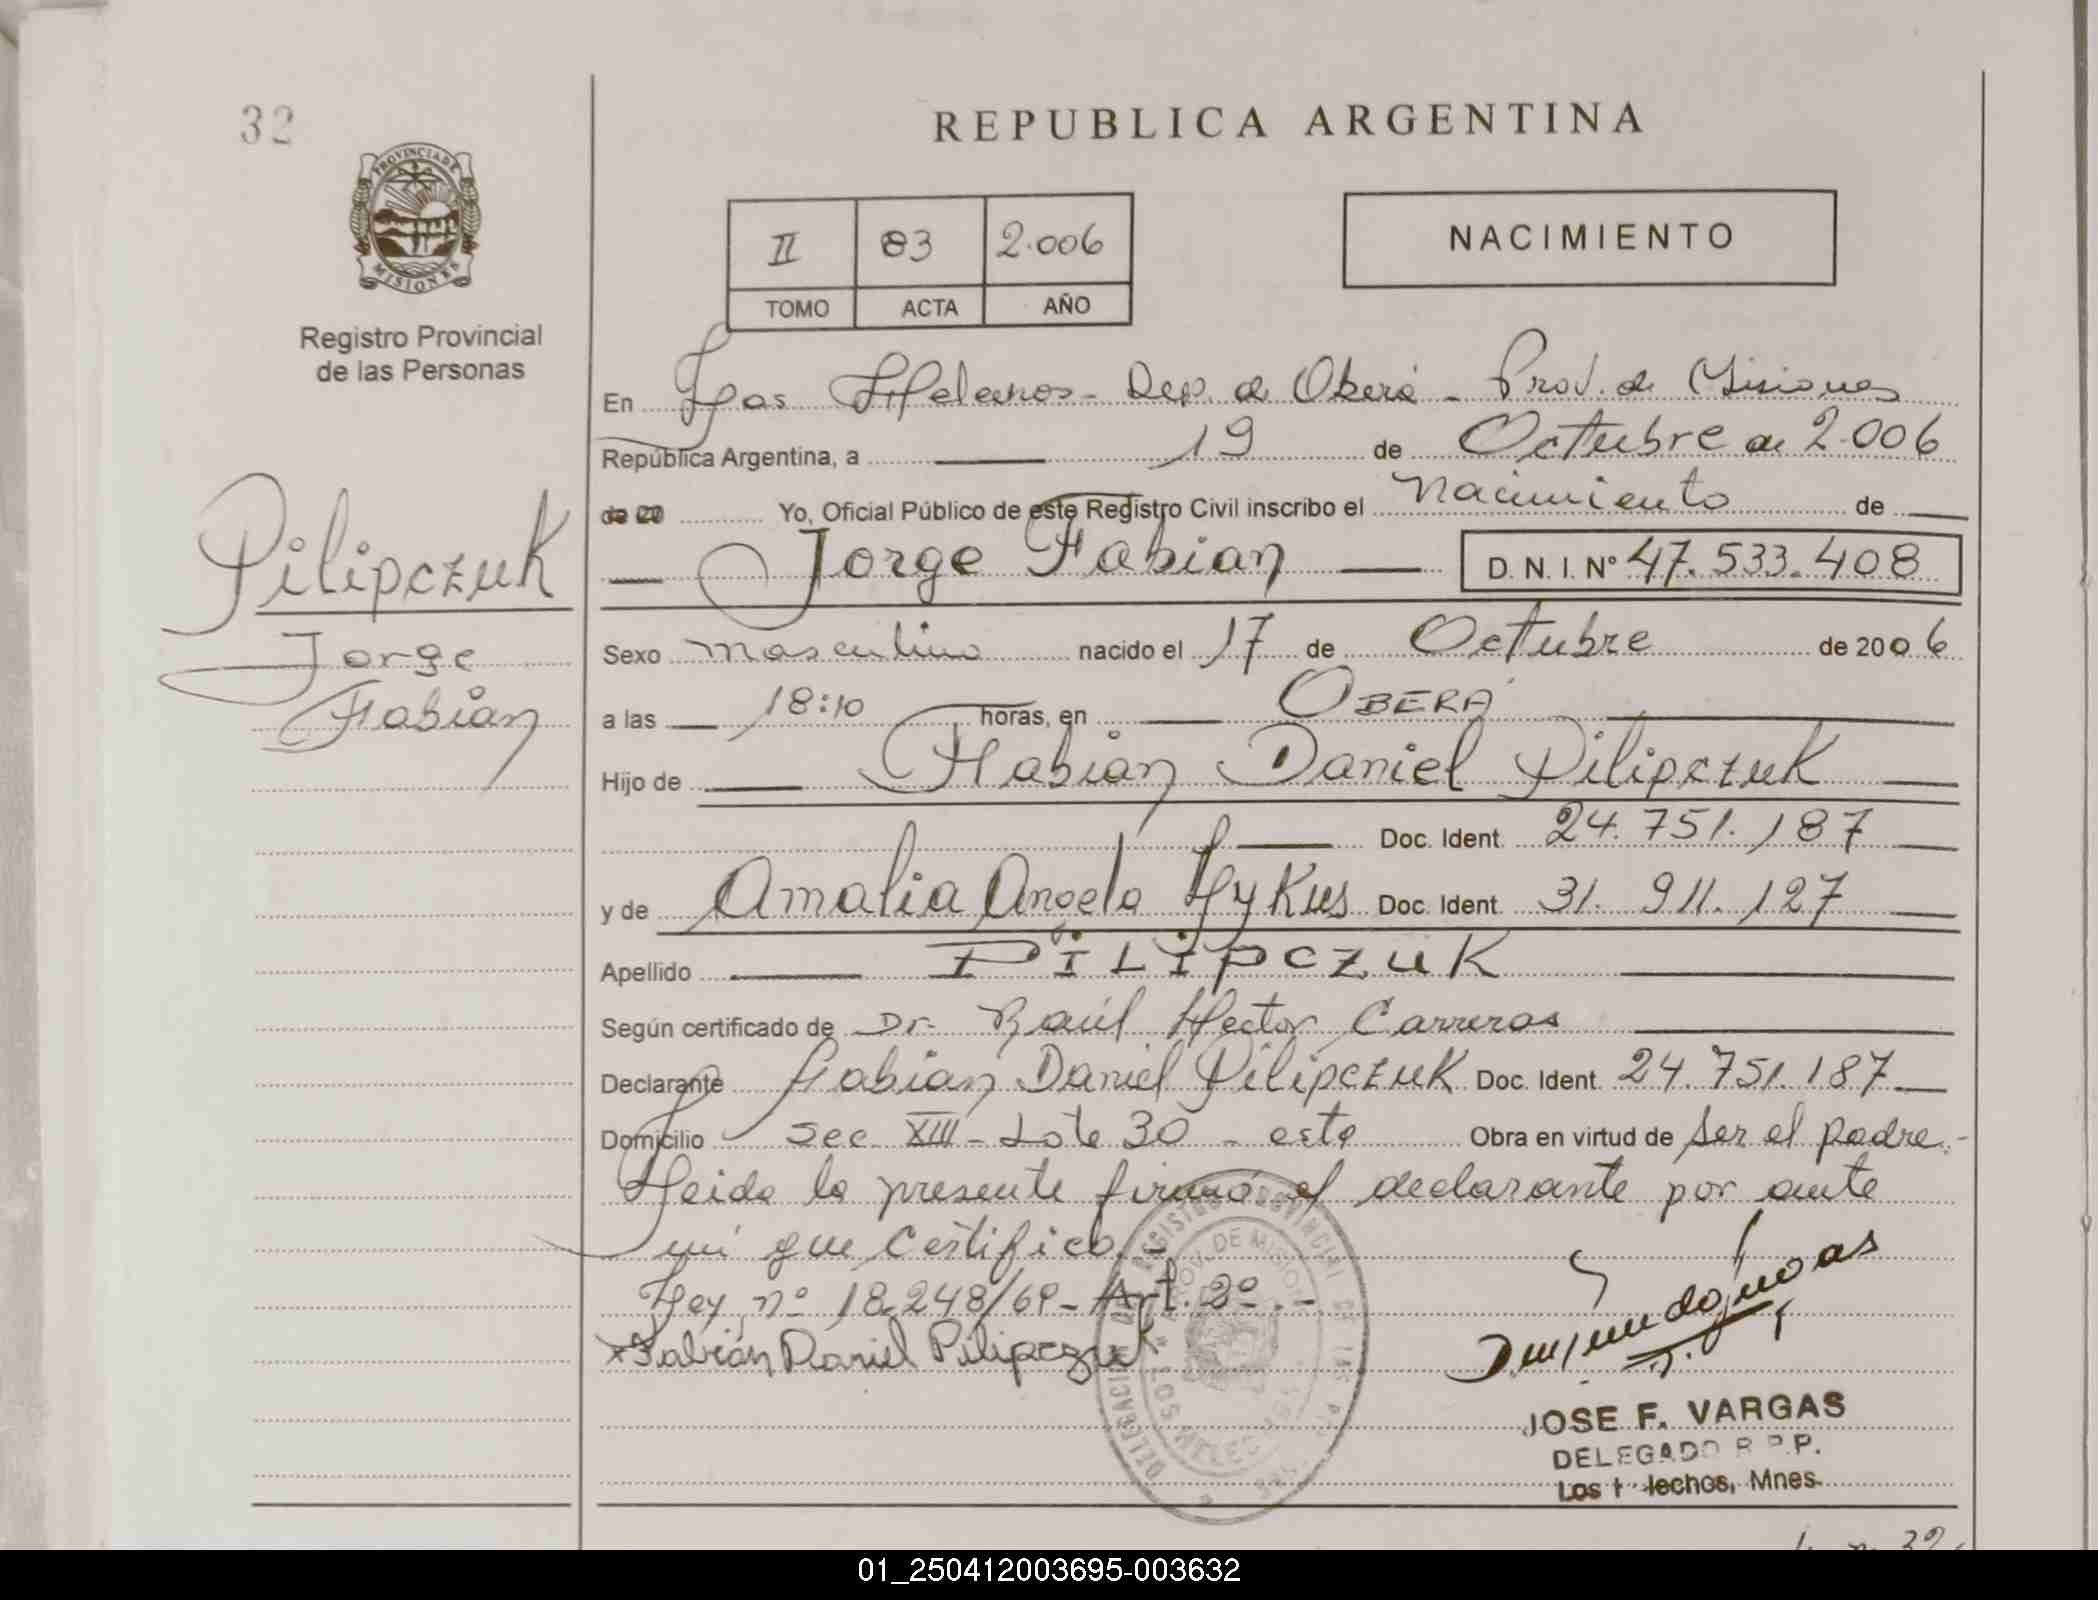 32
REPUBLICA ARGENTINA
PROVINCIA DE
MISIONES
Registro Provincial
de las Personas
II 83 2.006
TOMO ACTA AÑO
NACIMIENTO
En Los Helechos - Dep. de Oberá - Prov. de Misiones
República Argentina, a 19 de Octubre de 2.006
de 20 Yo, Oficial Público de este Registro Civil inscribo el nacimiento de
Jorge Fabian D.N.I. Nº 47.533.408
Pilipczuk
Jorge
Fabian
Sexo masculino nacido el 17 de Octubre de 2006
a las 18:10 horas, en OBERÁ
Hijo de Fabian Daniel Pilipczuk
Doc. Ident. 24.751.187
y de Amalia Angela Lykus Doc. Ident. 31.911.127
Apellido PiLipczuK
Según certificado de Dr. Raúl Hector Carreras
Declarante Fabian Daniel Pilipczuk Doc. Ident. 24.751.187
Domicilio Sec. XIII - Lote 30 - este Obra en virtud de ser el padre.-
Leida la presente firmó el declarante por ante
mi que certifico.-
Ley nº 18.248/69 - Art. 2º.-
Fabián Daniel Pilipczuk
DELEGACION REGISTRO PROVINCIAL DE LAS
PROV. DE MISIONES
LOS HELECHOS
JOSE F. VARGAS
DELEGADO R.P.P.
Los Helechos, Mnes.
01_250412003695-003632